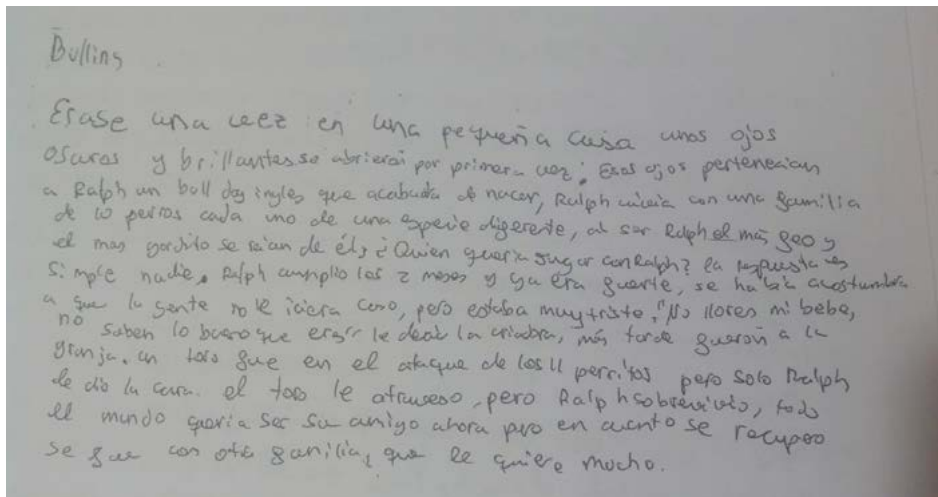 Bulling
Erase una veez en una pequeña casa unos ojos
oscuros y brillantes se abrieron por primera vez; Esos ojos pertenecian
a Ralph un bull dog ingles que acababa de nacer, Ralph vivia con una gamilia
de 10 perros cada uno de una especie digerente, al ser Ralph el más geo y
el mas gordito se reian de él; ¿Quien queria jugar con Ralph? la respuesta es
simple nadie. Ralph cumplio los 2 meses y ya era guerte, se había acostumbra
a que la gente no le iciera caso, pero estaba muy triste, "No llores mi bebe,
no saben lo bueno que eras" le decia la criadora, más tarde gueron a la
granja. un toro gue en el ataque de los 11 perritos pero solo Ralph
le dio la cara. el toro le atraveso, pero Ralph sobrevivio, todo
el mundo queria ser su amigo ahora pero en cuanto se recupero
se gue con otra gamilia, que le quiere mucho.